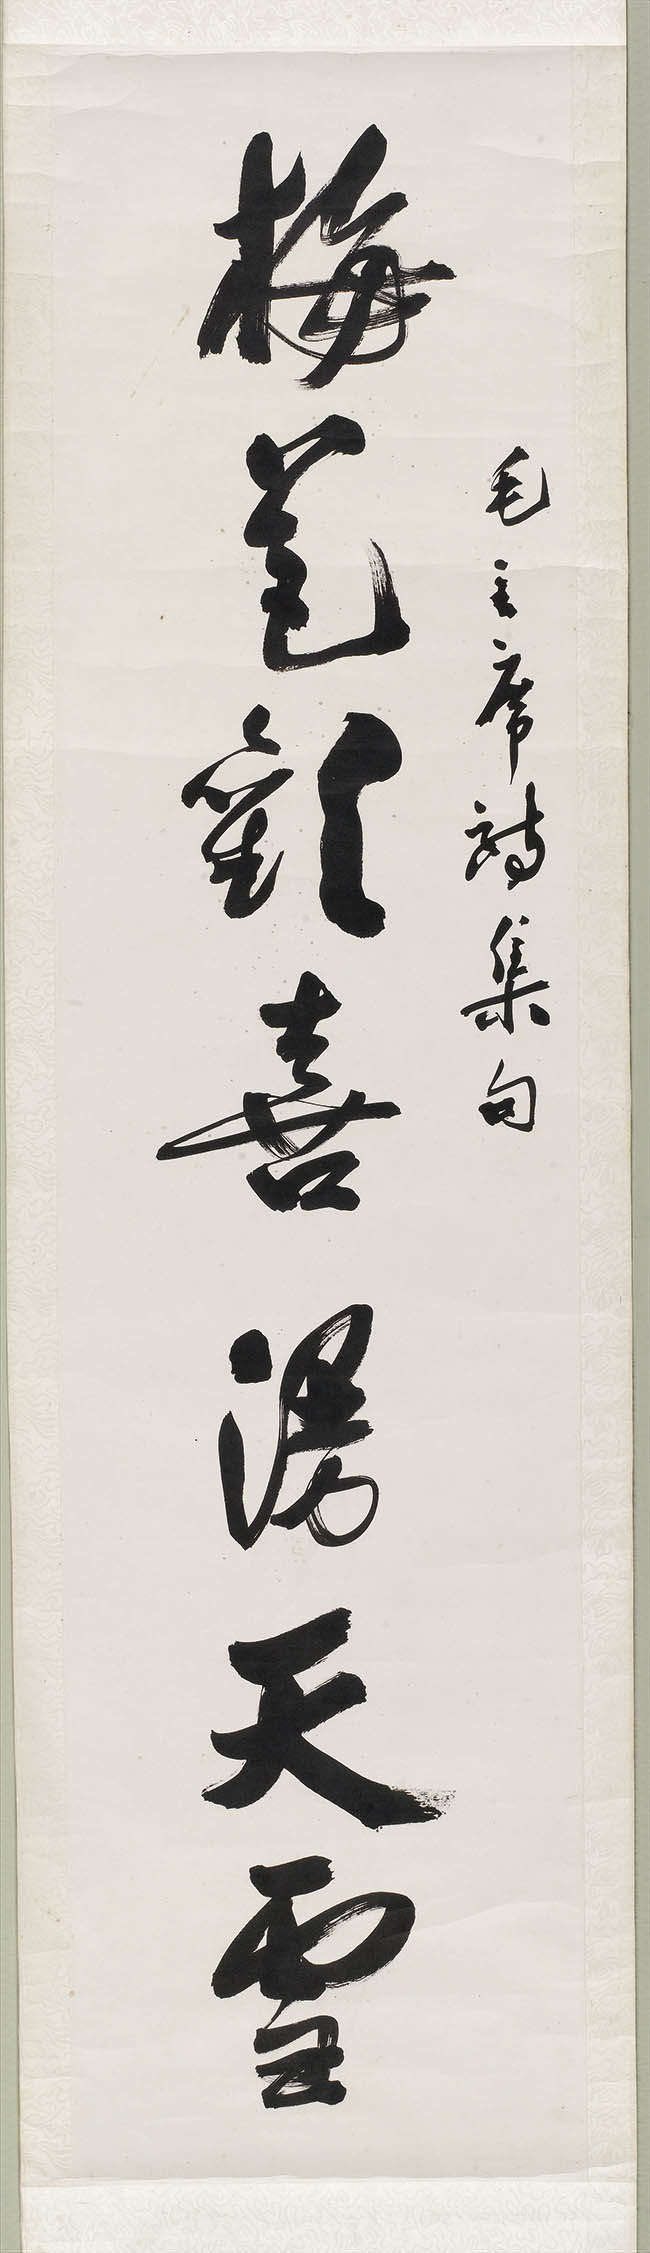 毛主席詩集句
梅花歡喜漫天雪